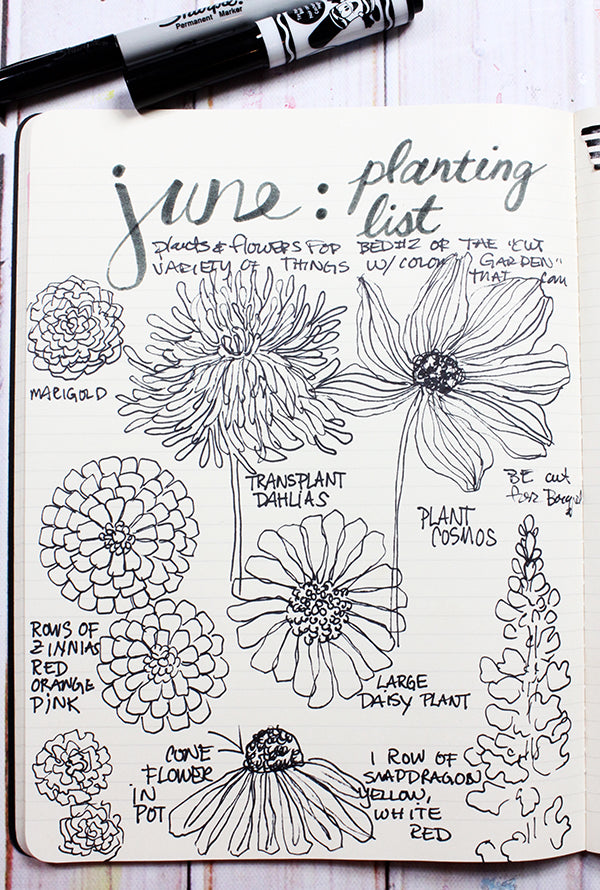 Sharpie
Permanent Marker
june: planting
list
plants & flowers FOR BED #2 OF THE "CUT
VARIETY OF THINGS W/ COLOR GARDEN"
THAT can
MARIGOLD
BE cut
for
TRANSPLANT
DAHLIAS
PLANT
COSMOS
ROWS OF
ZINNIAS
RED
ORANGE
PiNK
LARGE
DAISY PLANT
CONE
FLOWER
IN
POT
1 ROW OF
SNAPDRAGON
YELLOW,
WHITE
RED